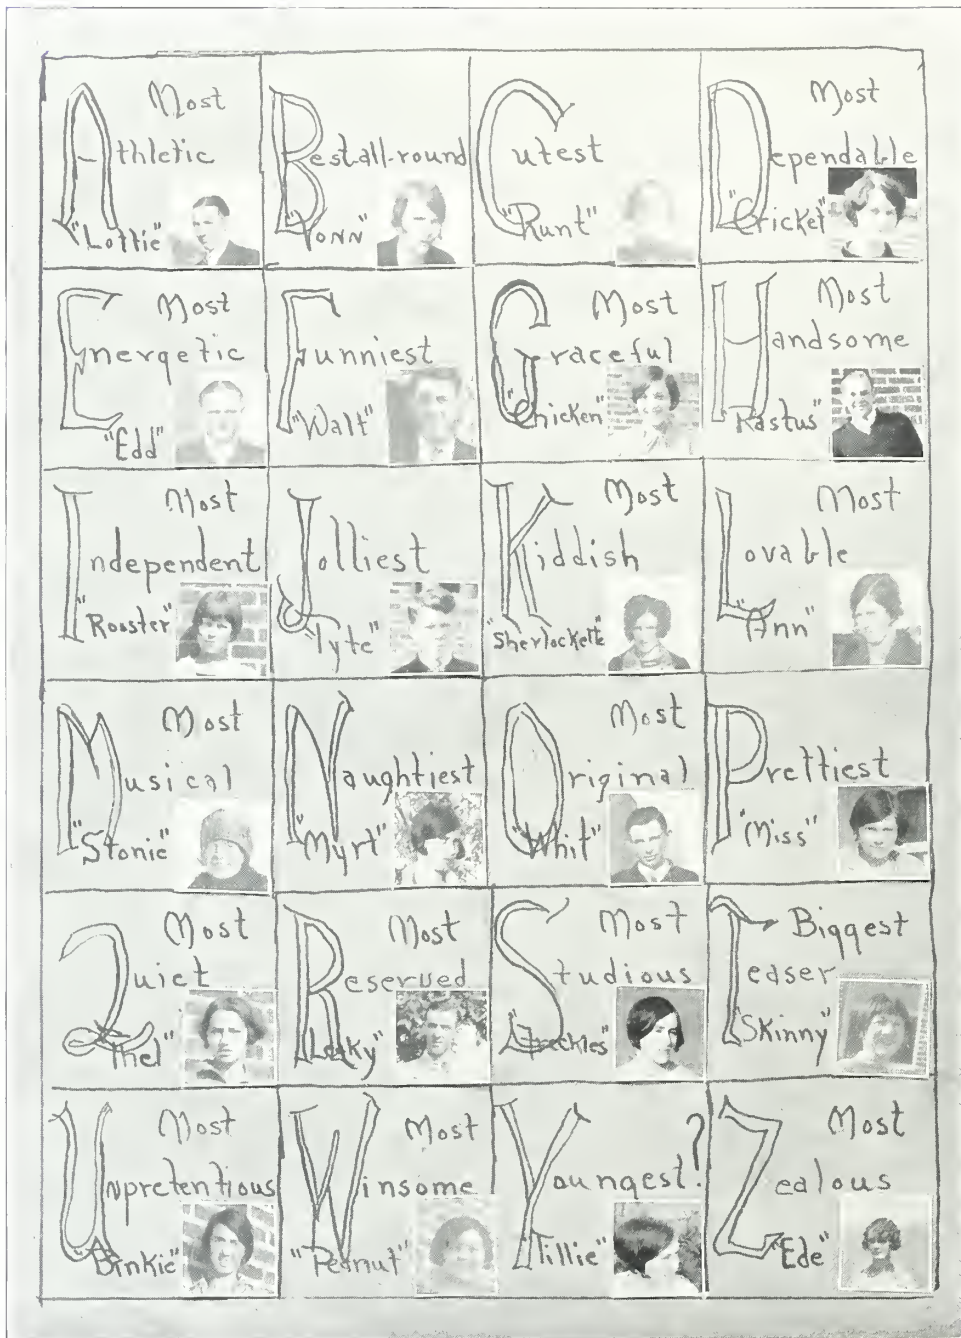 Most
Athletic
"Lottie"
Best all-round
"Tonn"
Cutest
"Runt"
Most
Dependable
"Cricket"
Most
Energetic
"Edd"
Funniest
"Walt"
Most
Graceful
"Chicken"
Most
Handsome
"Rastus"
Most
Independent
"Rooster"
Jolliest
"Tyte"
Most
Kiddish
"Sherlockette"
Most
Lovable
"Ann"
Most
Musical
"Stonie"
Naughtiest
"Myrt"
Most
Original
"Whit"
Prettiest
"Miss"
Most
Quiet
"Thel"
Most
Reserved
Most
Studious
Biggest
Teaser
"Skinny"
Most
Unpretentious
"Binkie"
Most
Winsome
"Peanut"
Youngest?
"Tillie"
Most
Zealous
"Ede"